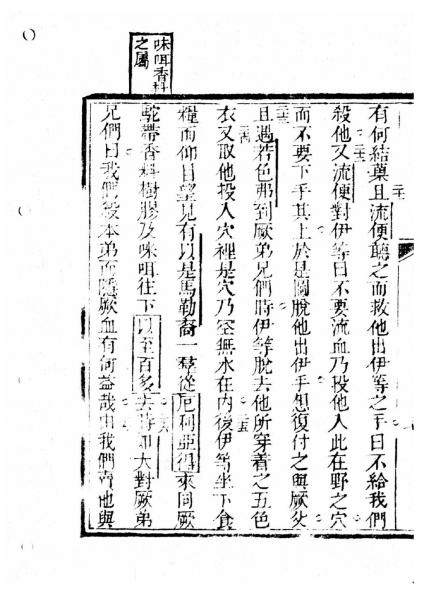 咪咡香料
之屬
有何結菓且流便聽之而救他出伊等之手曰不給我們
殺他又流便對伊等曰不要流血乃投他入此在野之穴
而不要下手其上於是圖脫他出伊手想復付之與厥父
且遇若色弗到厥弟兄們時伊等脫去他所穿着之五色
衣又取他投入穴裡是穴乃空無水在內後伊等坐下食
糧而仰目望見有以是馬勒裔一羣從厄利亞得來同厥
駝帶香料樹膠及咪咡往下以至百多去時如大對厥弟
兄們曰我們殺本弟而隱厥血有何益哉由我們賣他與